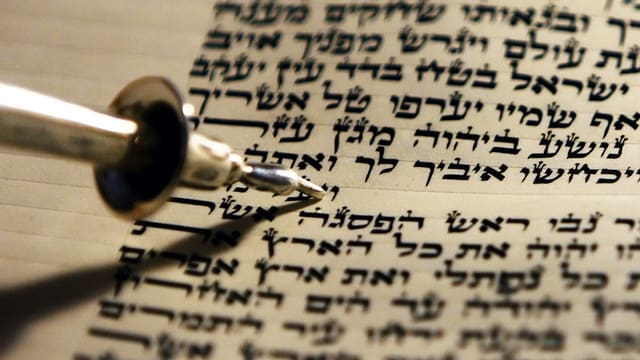 ובגאותו שחקים מענה
עולם ויגרש מפניך אויב
ישראל בטח בדד עין יעקב
אף שמיו יערפו טל אשריך
נושע ביהוה מגן
ויכחשו איביך לך ואתה
נבו ראש הפסגה אשר
יהוה את כל הארץ
כל נפתלי ואת ארץ אפרים
יהודה עד הים האחרון
בקעת ירחו עיר התמרים